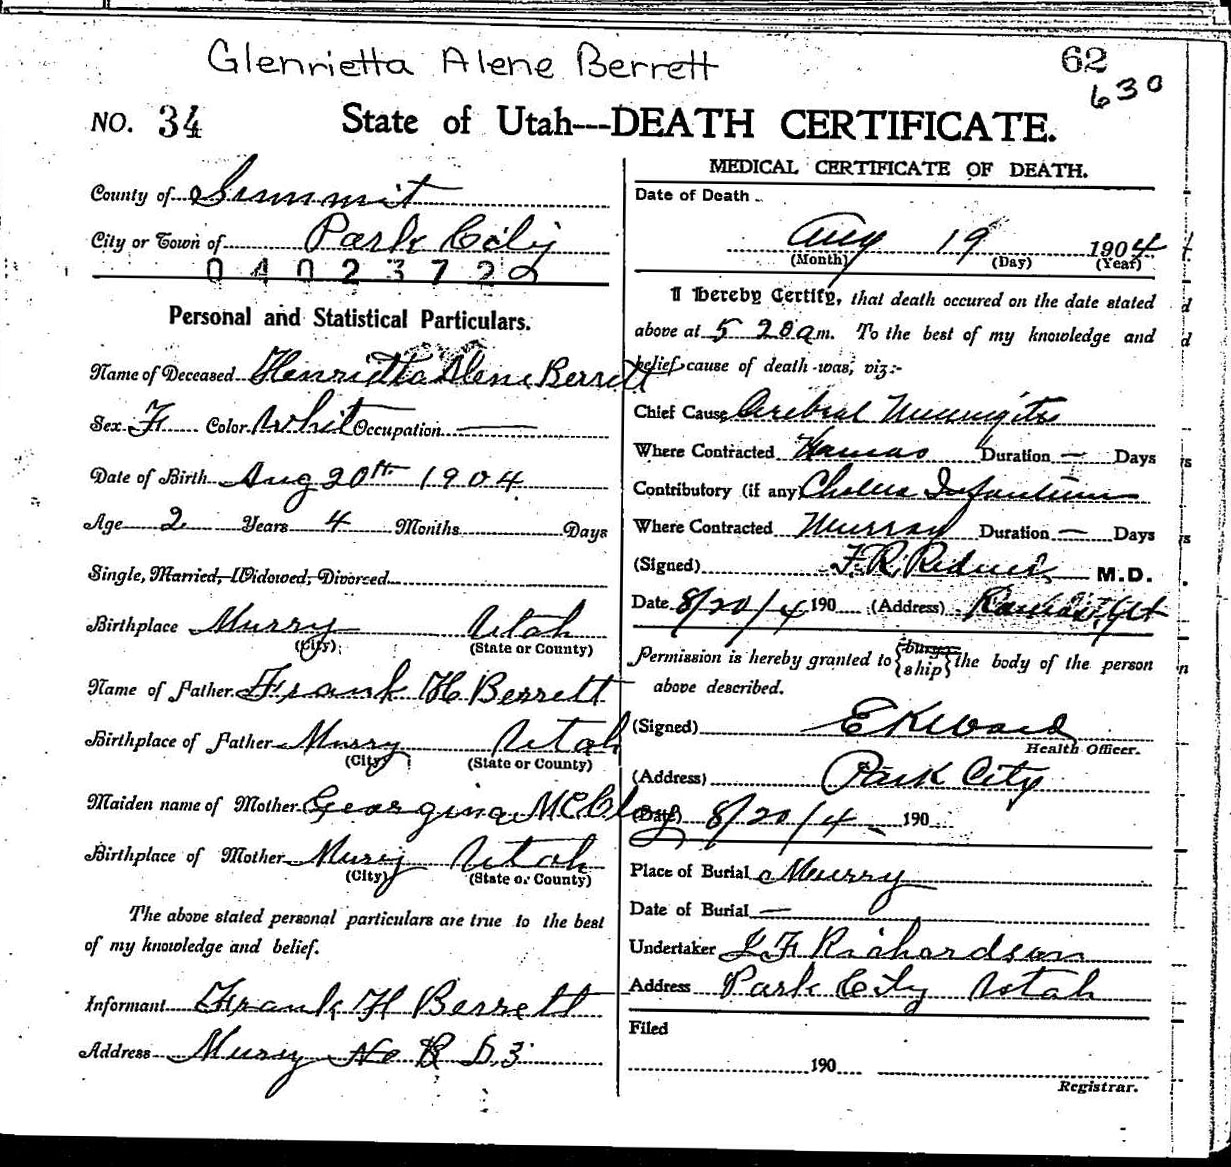 Glenrietta Alene Berrett
62
630
NO. 34 State of Utah---DEATH CERTIFICATE.
County of Summit
City or Town of Park City
0402372
Personal and Statistical Particulars.
Name of Deceased Henrietta Alene Berrett
Sex F Color White Occupation —
Date of Birth Aug 20th 1904
Age 2 Years 4 Months Days
Single, Married, Widowed, Divorced
Birthplace Murry Utah
(City) (State or County)
Name of Father Frank H Berrett
Birthplace of Father Murry Utah
(City) (State or County)
Maiden name of Mother Georgina McCloy
Birthplace of Mother Murry Utah
(City) (State or County)
The above stated personal particulars are true to the best
of my knowledge and belief.
Informant Frank H Berrett
Address Murry No R D, 3
MEDICAL CERTIFICATE OF DEATH.
Date of Death
Aug 19 1904
(Month) (Day) (Year)
I Hereby Certify, that death occured on the date stated
above at 5 20 a m. To the best of my knowledge and
belief cause of death was, viz:-
Chief Cause Cerebral Meningitis
Where Contracted Kamas Duration — Days
Contributory (if any) Cholera Infantum
Where Contracted Murray Duration — Days
(Signed) F. R. M.D.
Date 8/20/4 190 (Address)
Permission is hereby granted to {bury ship} the body of the person
above described.
(Signed) E K Ward
Health Officer.
(Address) Park City
(Date) 8/20/4 190
Place of Burial Murry
Date of Burial —
Undertaker Richardson
Address Park City Utah
Filed
190
Registrar.